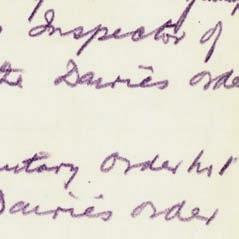 Inspector of
the Dairies Orde
utory Order No 1
Dairies order